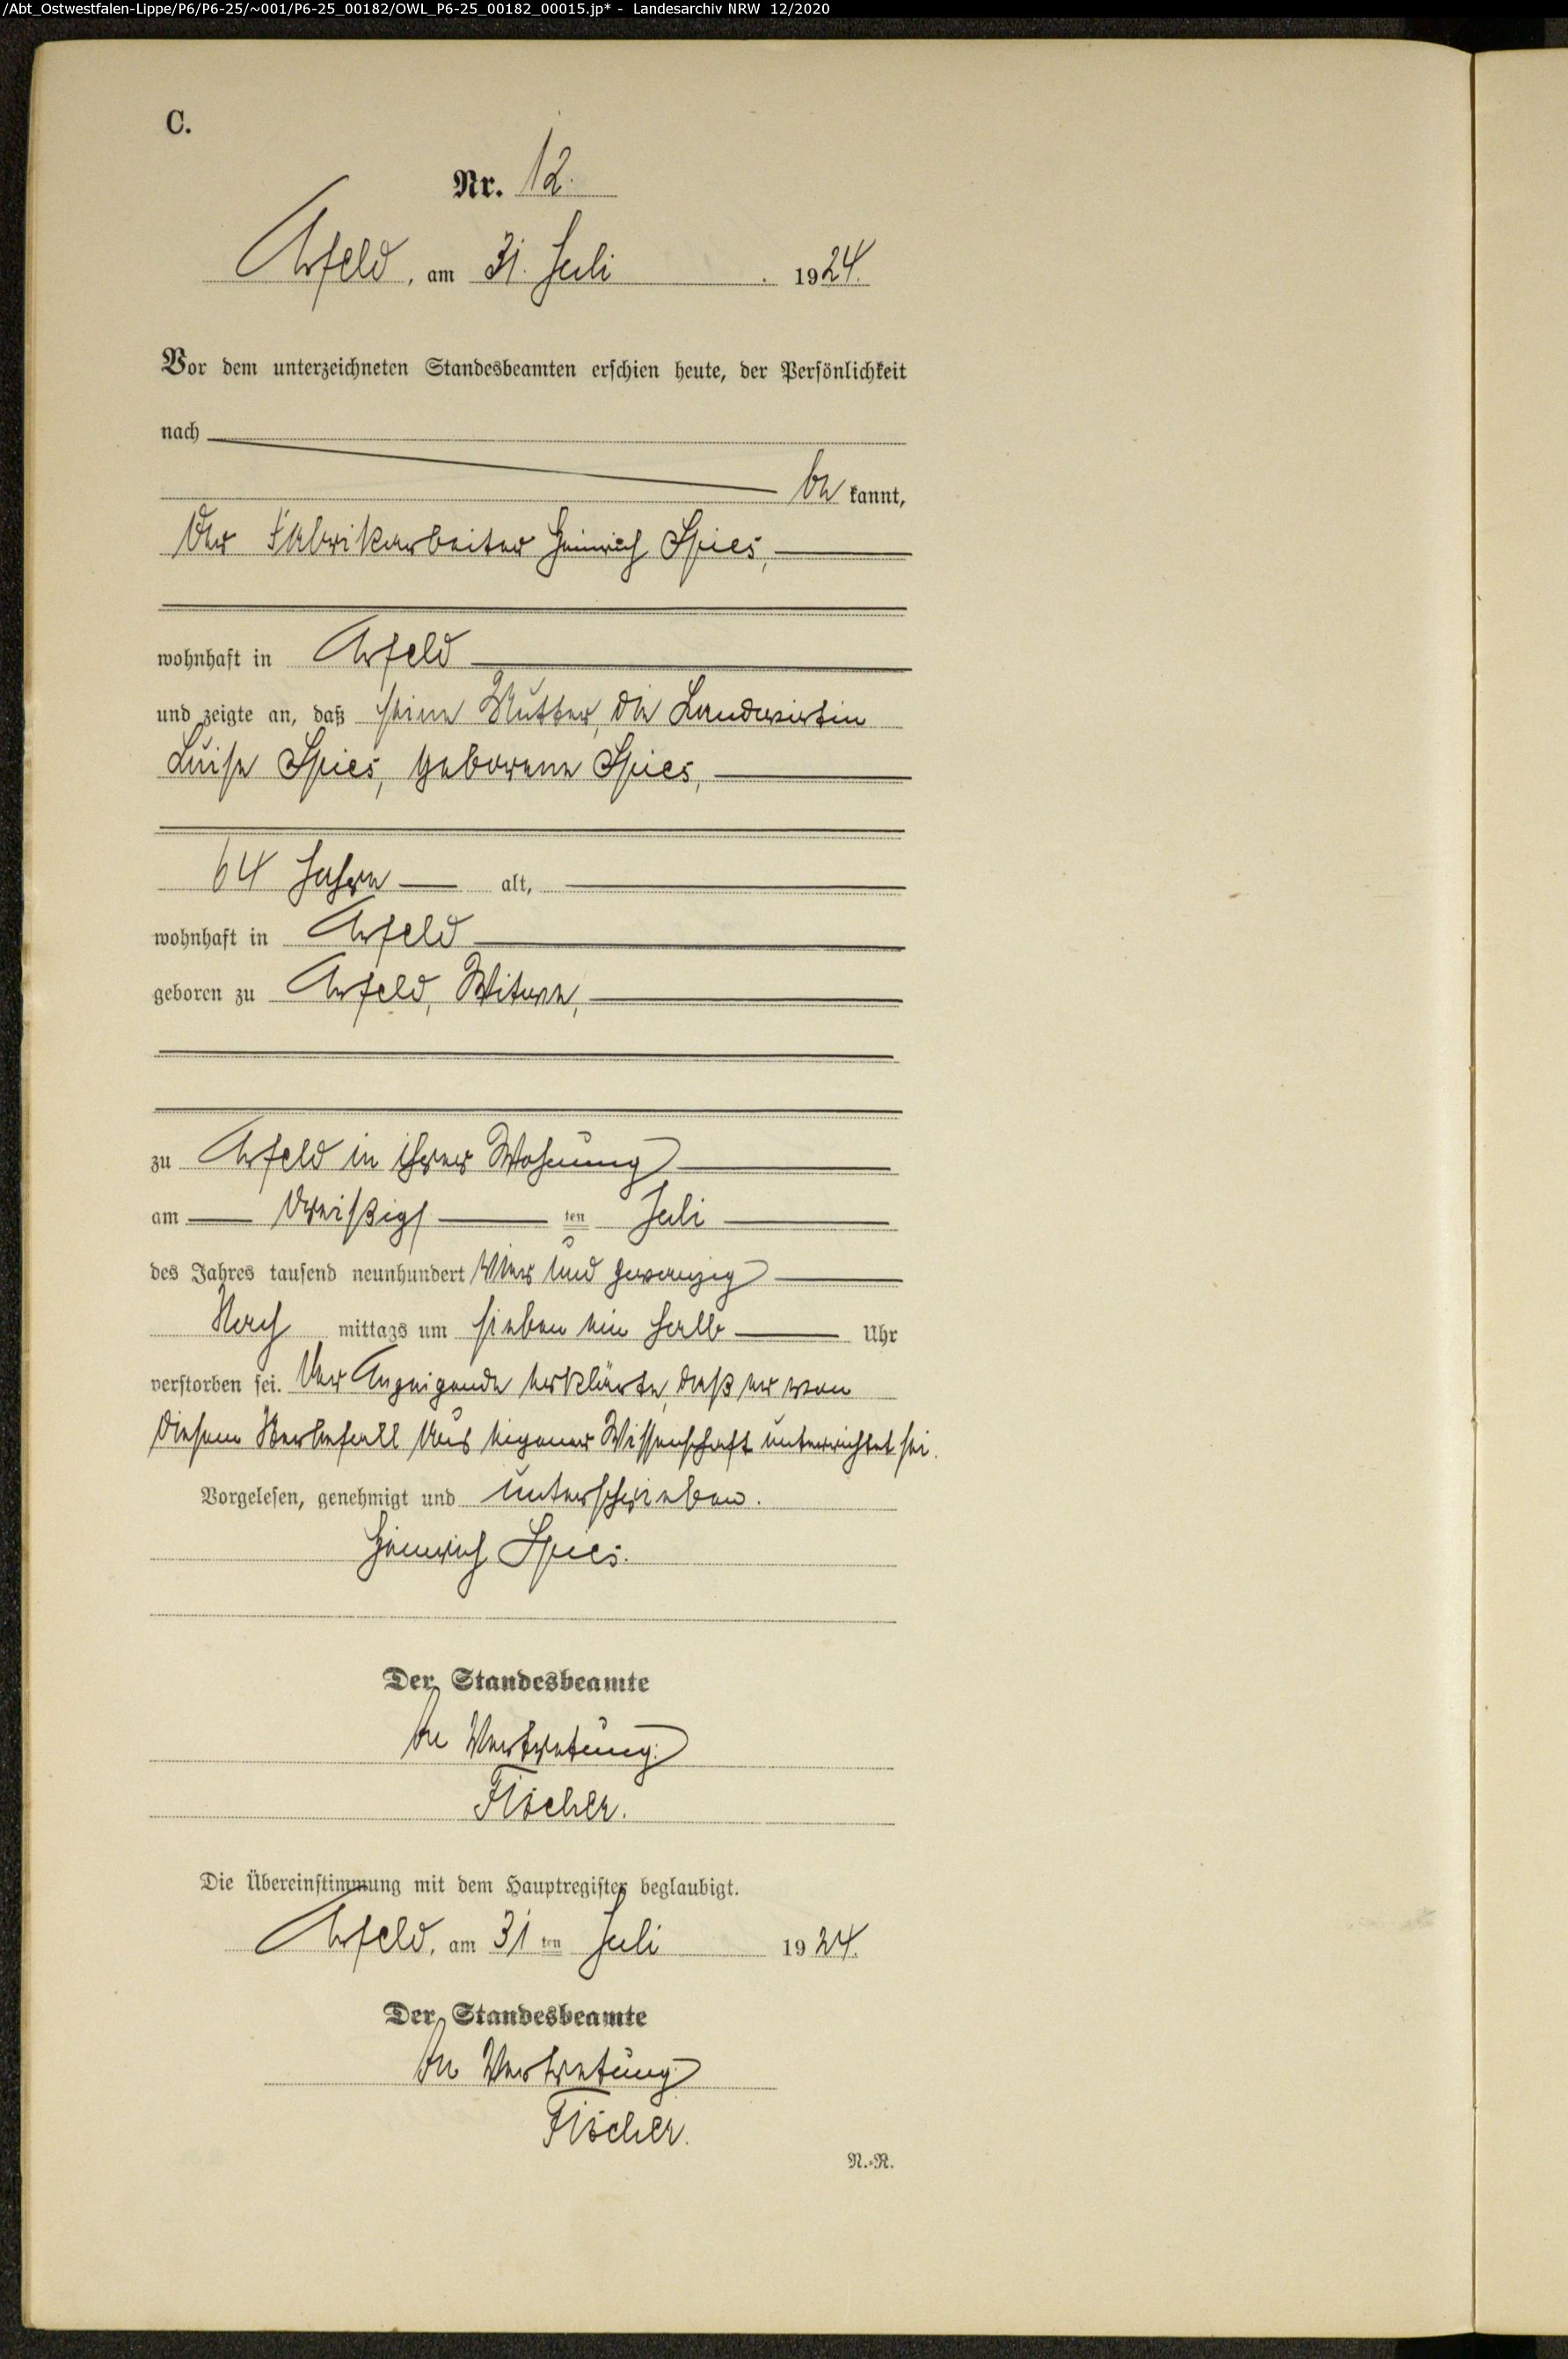 /Abt_Ostwestfalen-Lippe/P6/P6-25/~001/P6-25_00182/OWL_P6-25_00182_00015.jp* - Landesarchiv NRW 12/2020
C.
Nr. 12.
Arfeld, am 31. Juli 1924.
Vor dem unterzeichneten Standesbeamten erschien heute, der Persönlichkeit
nach
be kannt,
der Fabrikarbeiter Heinrich Spies,
wohnhaft in Arfeld
und zeigte an, daß seine Mutter, die Landwirtin
Luise Spies, geborene Spies,
64 Jahre alt,
wohnhaft in Arfeld
geboren zu Arfeld, Witwe,
zu Arfeld in ihrer Wohnung
am dreißigs ten Juli
des Jahres tausend neunhundert vier und zwanzig
Nach mittags um sieben ein halb Uhr
verstorben sei. Der Anzeigende erklärte, daß er von
diesem Sterbefall aus eigener Wissenschaft unterrichtet sei.
Vorgelesen, genehmigt und unterschrieben.
Heinrich Spies.
Der Standesbeamte
In Vertretung.
Fischer.
Die Übereinstimmung mit dem Hauptregister beglaubigt.
Arfeld, am 31 ten Juli 1924.
Der Standesbeamte
In Vertretung
Fischer.
N.-R.